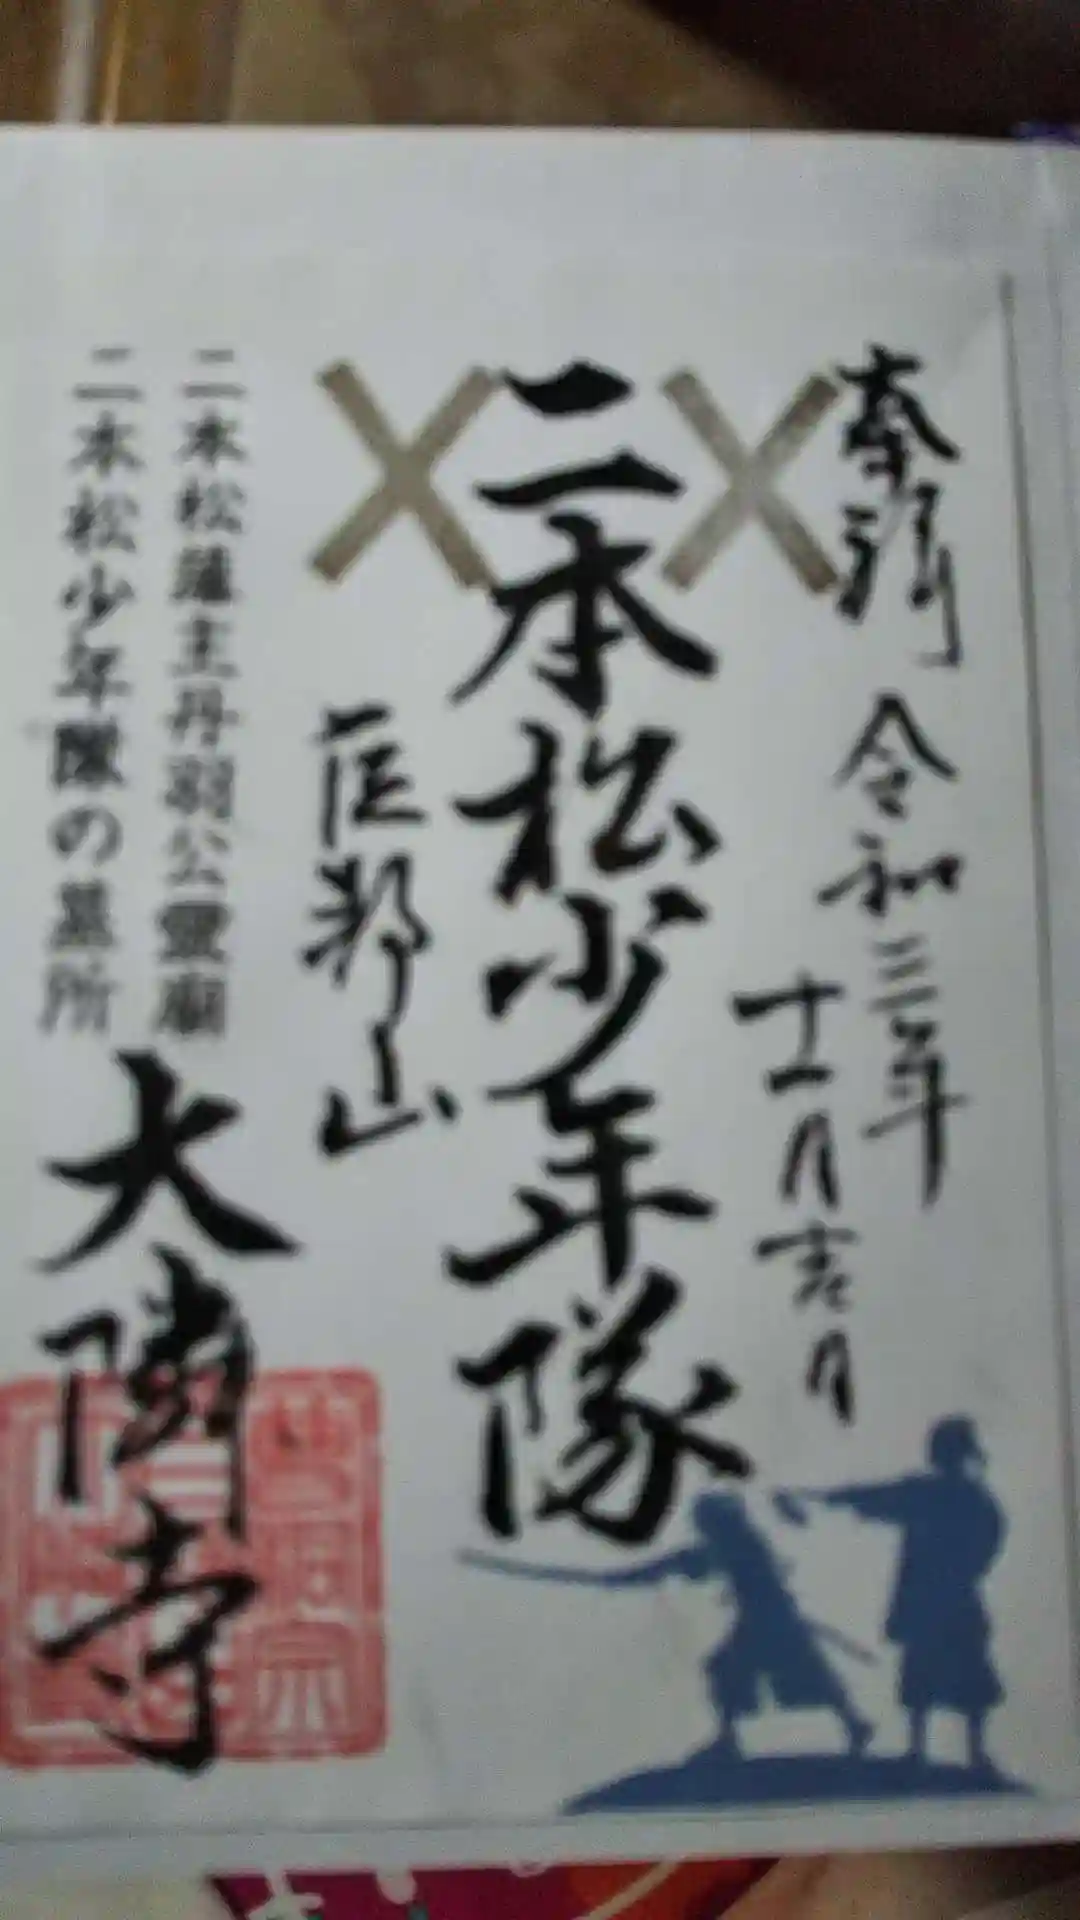 奉拝
令和三年
十一月吉日
二本松少年隊
巨邦山
二本松藩主丹羽公霊廟
二本松少年隊の墓所
大隣寺